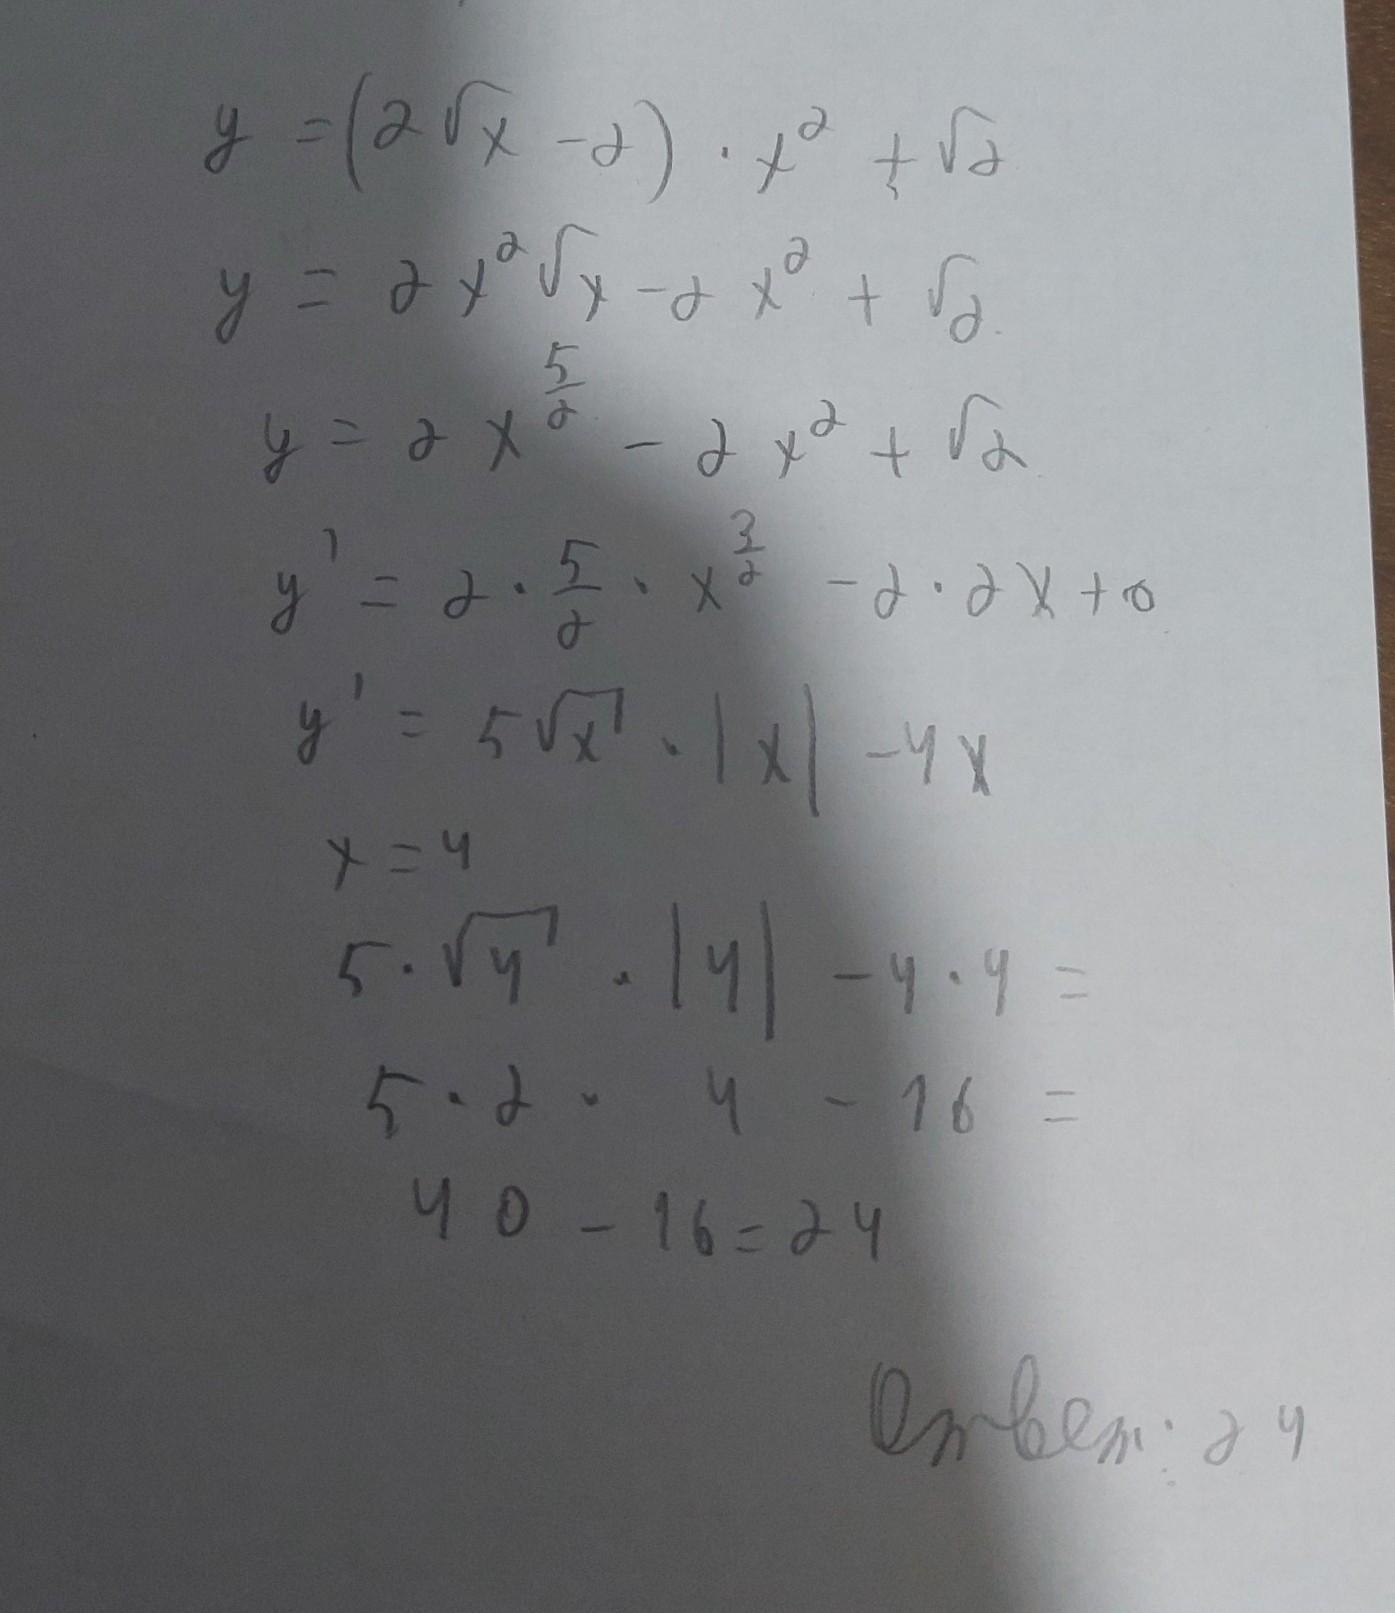 y = (2√x - 2) · x² + √2
y = 2x²√x - 2x² + √2
y = 2x^(5/2) - 2x² + √2
y' = 2 · 5/2 · x^(3/2) - 2 · 2x + 0
y' = 5√x · |x| - 4x
x = 4
5 · √4 · |4| - 4 · 4 =
5 · 2 · 4 - 16 =
40 - 16 = 24
Ответ: 24